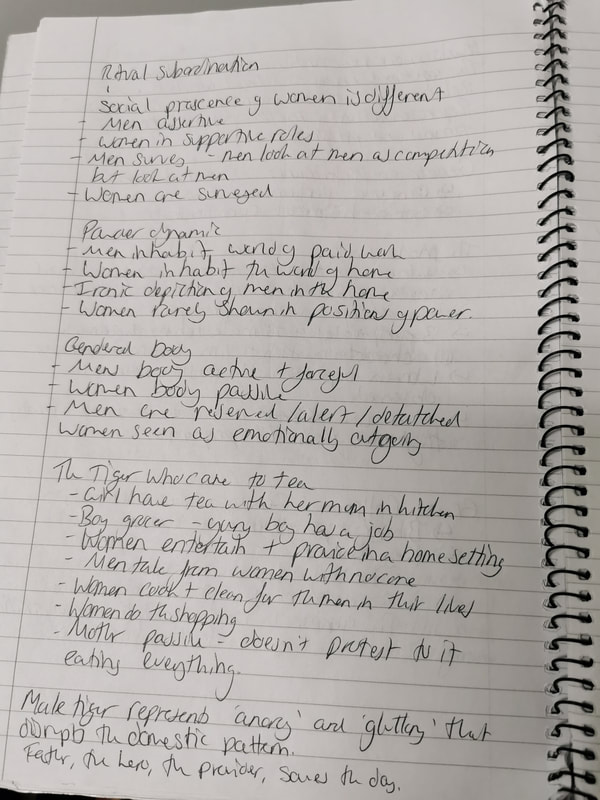 Ritual subordination
Social prescence of women is different
- Men assertive
- Women in supportive roles
- Men survey - men look at men as competition
but look at men
- Women are surveyed
Power dynamic
- Men inhabit world of paid work
- Women inhabit the world of home
- Ironic depiction of men in the home
- Women rarely shown in position of power.
Gendered body
- Mens body active + forceful
- Women body passive
- Men are reserved / alert / detatched
Women seen as emotionally outgoing
The Tiger who came to tea
- Girl have tea with her mum in kitchen
- Boy grocer - young boy has a job
- Women entertain + provide in a home setting
- Men take from women with no care
- Women cook + clean for the men in their lives
- Women do the shopping
- Mother passive - doesn't protest to it
eating everything.
Male tiger represents 'anarchy' and 'gluttony' that
disrupts the domestic pattern.
Father, the hero, the provider, saves the day.